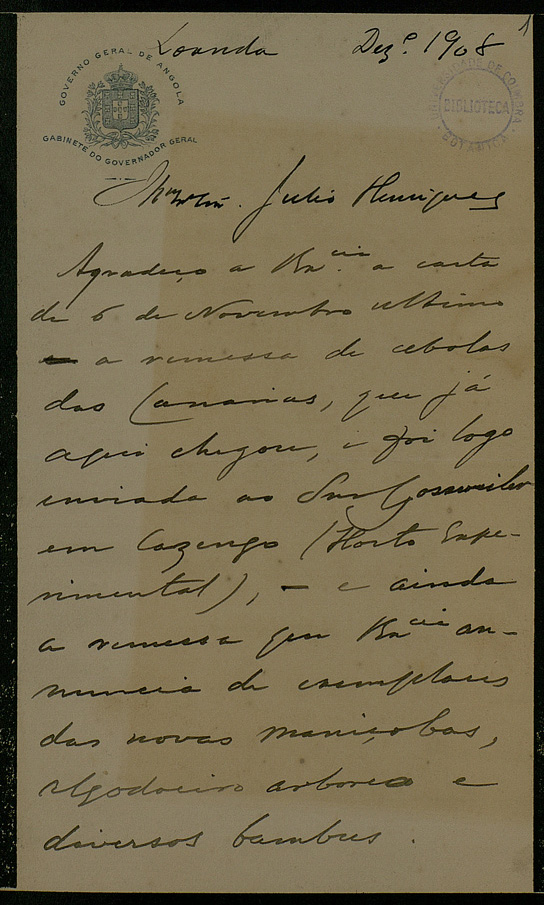 1
Loanda Dezº. 1908
GOVERNO GERAL DE ANGOLA
GABINETE DO GOVERNADOR GERAL
UNIVERSIDADE DE COIMBRA
BIBLIOTECA
BOTANICA
Julio Henriques
Agradeço a Exᶜⁱᵃ a carta
de 6 de Novembro ultimo
a remessa de cebolas
das Canarias, que já
aqui chegou, e foi logo
enviada ao Snr Gossweiler
em Cazengo (Horto Expe-
rimental), – e ainda
a remessa que Exᶜⁱᵃ an-
nuncia de exemplares
das novas maniçobas,
algodoeiro arboreo e
diversos bambus.